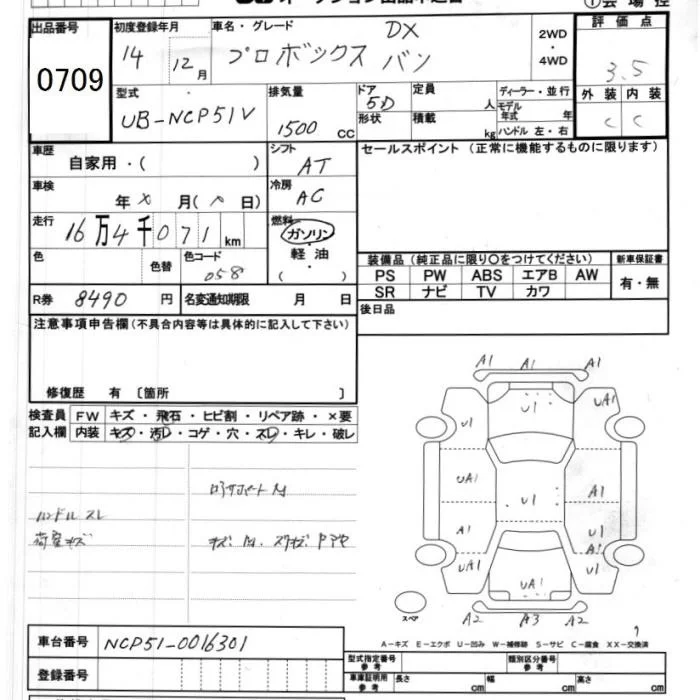 出品番号 初度登録年月 車名・グレード DX 2WD・4WD 評価点
0709 14 12月 プロボックス バン 3.5
型式 排気量 ドア 定員 ディーラー・並行 外装 内装
UB-NCP51V 1500cc 5D 人 モデル年式 年 C C
形状 積載 kg ハンドル 左・右
車歴 自家用・( ) シフト AT セールスポイント(正常に機能するものに限ります)
車検 年 月( 日) 冷房 AC
走行 16万4千071km 燃料 ガソリン・軽油・( )
色 色替 色コード 058 装備品(純正品に限り○をつけてください) 新車保証書
PS PW ABS エアB AW 有・無
SR ナビ TV カワ
R券 8490円 名変通知期限 月 日 後日品
注意事項申告欄(不具合内容等は具体的に記入して下さい)
修復歴 有〔箇所 〕
検査員 FW キズ・飛石・ヒビ割・リペア跡・×要
記入欄 内装 キズ・汚レ・コゲ・穴・スレ・キレ・破レ
ハンドル スレ
荷室キズ
A1 A1 A1
U1 UA1
U1
UA1 A1
U1
A1 U1
A1
UA1 U1
UA1
A2 A3 A2
スペア
A-キズ E-エクボ U-凹み W-補修跡 S-サビ C-腐食 XX-交換済
車台番号 NCP51-0016301
型式指定番号 参考 類別区分番号 参考
登録番号 車庫証明用 参考 長さ cm 幅 cm 高さ cm